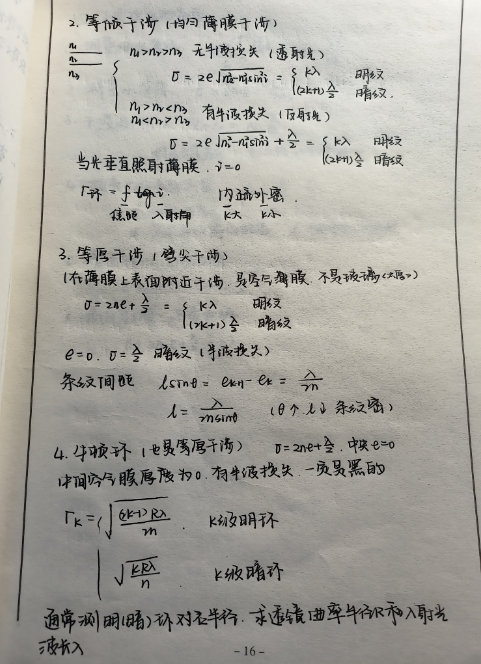 2. 等倾干涉 (均匀薄膜干涉)
n₁
n₂
n₃
n₁>n₂>n₃ 无半波损失 (透射光)
δ = 2e√(n₂²-n₁²sin²i) = { kλ 明纹
(2k+1)λ/2 暗纹.
n₁>n₂<n₃
n₁<n₂>n₃ 有半波损失 (反射光)
δ = 2e√(n₂²-n₁²sin²i) + λ/2 = { kλ 明纹
(2k+1)λ/2 暗纹
当光垂直照射薄膜, i=0
r环 = f tan i. 内疏外密.
焦距 入射角 k大 k小
3. 等厚干涉 (劈尖干涉)
(在薄膜上表面附近干涉, 是空气薄膜, 不是玻璃<太厚>)
δ = 2ne + λ/2 = { kλ 明纹
(2k+1)λ/2 暗纹
e=0. δ=λ/2 暗纹 (半波损失)
条纹间距 lsinθ = eₖ₊₁ - eₖ = λ/2n
l = λ/2nsinθ (θ↑ l↓ 条纹密)
4. 牛顿环 (也是等厚干涉) δ=2ne+λ/2. 中央e=0
中间空气膜厚度为0. 有半波损失. 一定是黑的
rₖ = { √((2k-1)Rλ/2n). k级明环
√(kRλ/n) k级暗环
通常测明(暗)环对应半径, 求透镜曲率半径R和入射光
波长λ
-16-